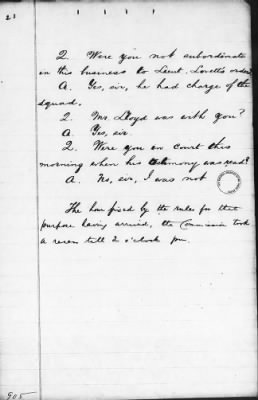 21
Q. Were you not subordinate
in this business to Lieut. Lovett's orders
A. Yes, sir, he had charge of the
squad.
Q. Mr. Lloyd was with you?
A. Yes, sir.
Q. Were you in court this
morning when his testimony was read?
A. No, sir, I was not
The hour fixed by the rules for that
purpose having arrived, the Commission took
a recess till 2 o'clock pm.
905